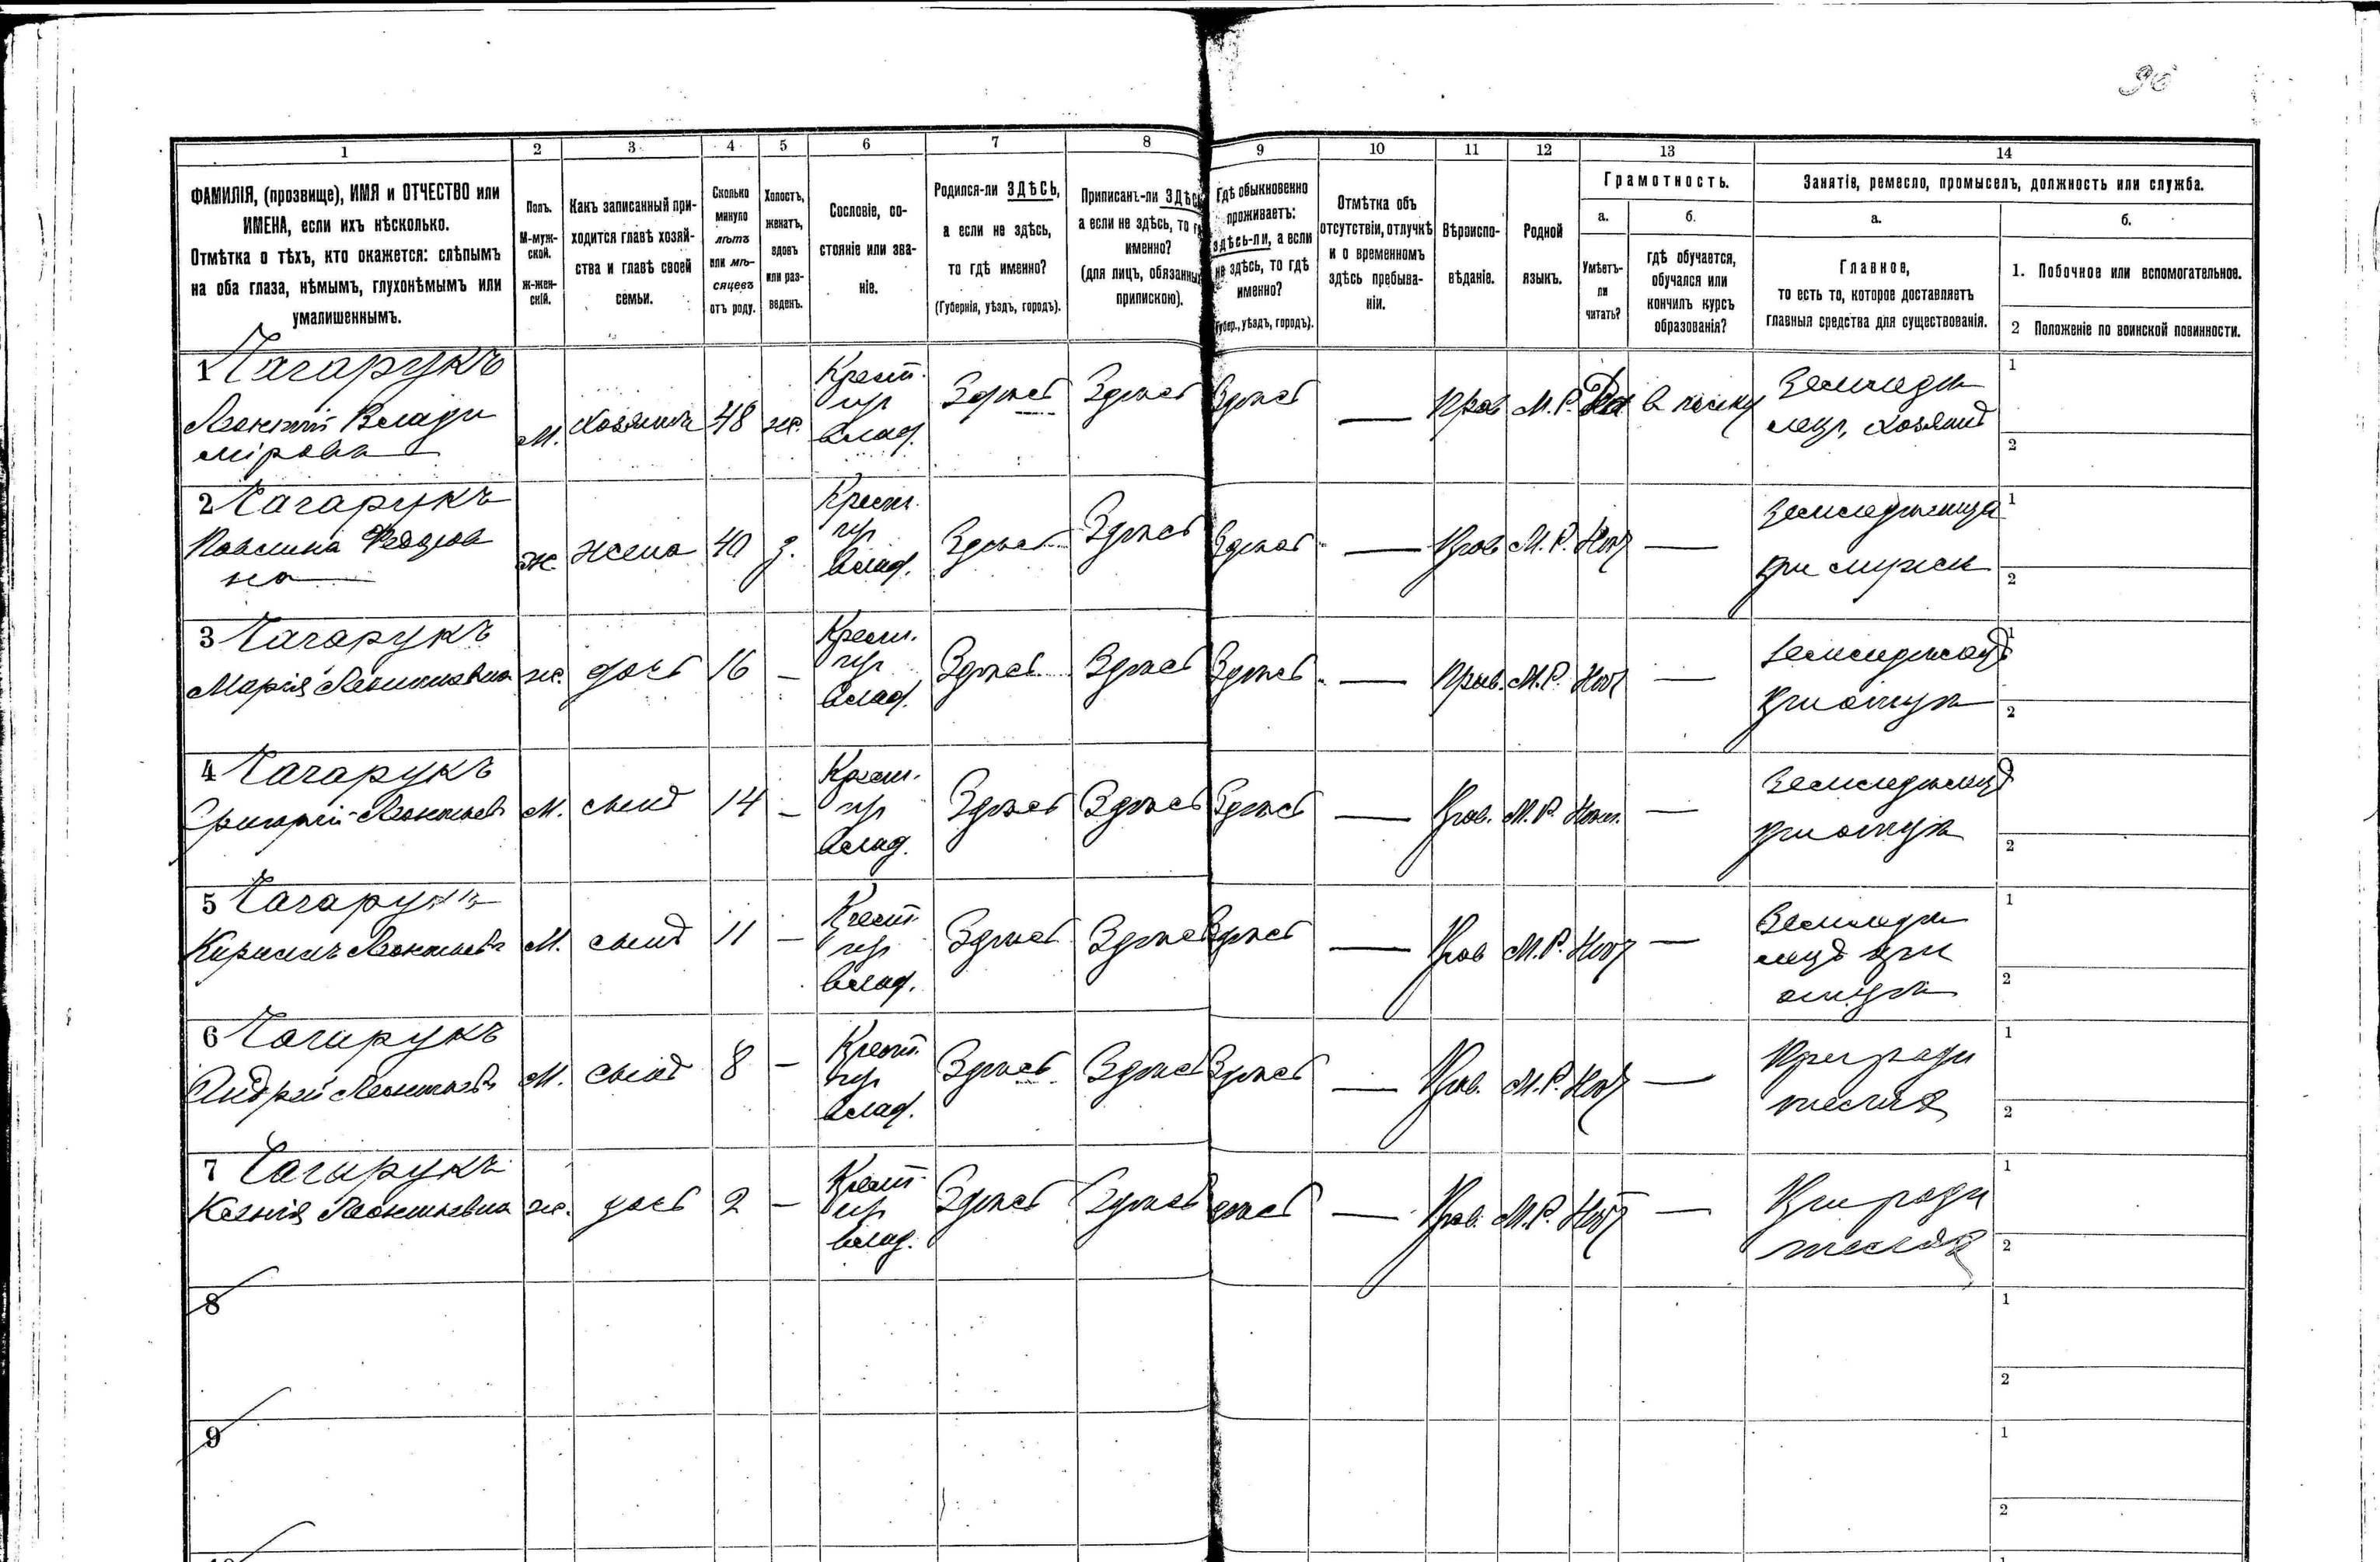 96
1 2 3 4 5 6 7 8 9 10 11 12 13 14
ФАМИЛІЯ, (прозвище), ИМЯ и ОТЧЕСТВО или
ИМЕНА, если ихъ нѣсколько.
Отмѣтка о тѣхъ, кто окажется: слѣпымъ
на оба глаза, нѣмымъ, глухонѣмымъ или
умалишеннымъ.
Полъ.
М-муж-
ской.
ж-жен-
скій.
Какъ записанный при-
ходится главѣ хозяй-
ства и главѣ своей
семьи.
Сколько
минуло
лѣтъ
или мѣ-
сяцевъ
отъ роду.
Холостъ,
женатъ,
вдовъ
или раз-
веденъ.
Сословіе, со-
стояніе или зва-
ніе.
Родился-ли ЗДѢСЬ,
а если не здѣсь,
то гдѣ именно?
(Губернія, уѣздъ, городъ).
Приписанъ-ли ЗДѢСЬ
а если не здѣсь, то
именно?
(для лицъ, обязанны
припискою).
Гдѣ обыкновенно
проживаетъ:
здѣсь-ли, а если
не здѣсь, то гдѣ
именно?
губер., уѣздъ, городъ).
Отмѣтка объ
отсутствіи, отлучкѣ
и о временномъ
здѣсь пребыва-
ніи.
Вѣроиспо-
вѣданіе.
Родной
языкъ.
Грамотность.
а.
Умѣетъ-
ли
читать?
б.
гдѣ обучается,
обучался или
кончилъ курсъ
образованія?
Занятіе, ремесло, промыселъ, должность или служба.
а.
Главное,
то есть то, которое доставляетъ
главныя средства для существованія.
б.
1. Побочное или вспомогательное.
2 Положеніе по воинской повинности.
1 Чагарукъ
Леонтій Влади
міровъ
М. Хозяинъ 48 ж.
Крест.
влад.
Здѣсь Здѣсь Здѣсь — Прав М. Р. Да
Земледѣ
лец, хозяинъ
1
2
2 Чагарукъ
Павлина Федоров
на
ж жена 40 з.
Крест.
влад.
Здѣсь Здѣсь Здѣсь — Прав М. Р. Нѣт —
Земледѣлица
при мужѣ
1
2
3 Чагарукъ
Марія Леонтьевна
ж. дочь 16 —
Крест.
влад.
Здѣсь Здѣсь Здѣсь — Прав. М. Р. Нѣт —
при отцѣ
1
2
4 Чагарукъ
Григорій Леонтьевъ
М. сынъ 14 —
Крест.
влад.
Здѣсь Здѣсь Здѣсь — Прав. М. Р. Нѣт. —
Земледѣлецъ
при отцѣ
2
5 Чагарукъ
Кириллъ Леонтьевъ
М. сынъ 11 —
Крест.
влад.
Здѣсь Здѣсь Здѣсь — Прав М. Р. Нѣт —
Земледѣ
лецъ при
отцѣ
1
2
6 Чагарукъ
Андрей Леонтьевъ
М. сынъ 8 —
Крест.
влад.
Здѣсь Здѣсь Здѣсь — Прав. М. Р. Нѣт —
При роди
теляхъ
1
2
7 Чагарукъ
Ксенія Леонтьевна
ж. дочь 2 —
Крест.
влад.
Здѣсь Здѣсь Здѣсь — Прав. М. Р. Нѣт —
При роди
теляхъ
1
2
8
1
2
9
1
2